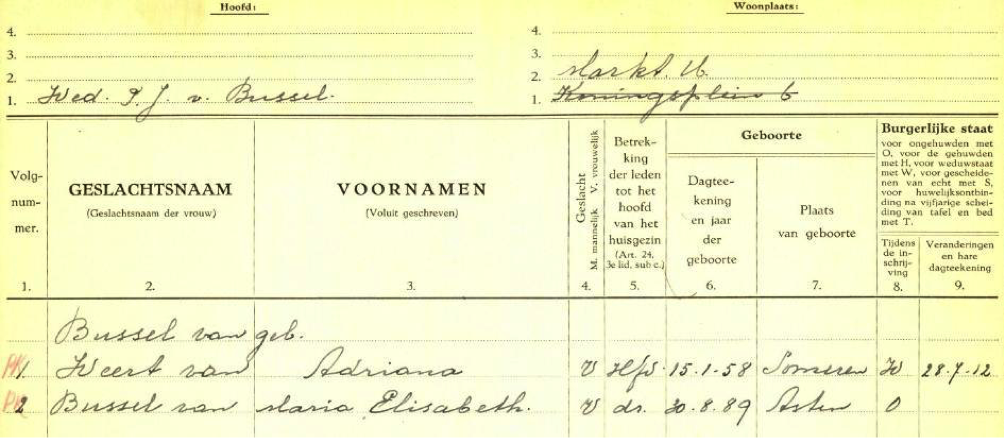 Hoofd: Woonplaats:
4. 4.
3. 3.
2. 2. Markt. 16.
1. Wed. P. J. v. Bussel. 1. Koningsplein 6
Volg-
num-
mer.
1.
GESLACHTSNAAM
(Geslachtsnaam der vrouw)
2.
VOORNAMEN
(Voluit geschreven)
3.
Geslacht
M. mannelijk V. vrouwelijk
4.
Betrek-
king
der leden
tot het
hoofd
van het
huisgezin
(Art. 24,
3e lid, sub c.)
5.
Geboorte
Dagtee-
kening
en jaar
der
geboorte
6.
Plaats
van geboorte
7.
Burgerlijke staat
voor ongehuwden met
O, voor de gehuwden
met H, voor weduwstaat
met W, voor gescheide-
nen van echt met S,
voor huwelijksontbin-
ding na vijfjarige schei-
ding van tafel en bed
met T.
Tijdens
de in-
schrij-
ving
8.
Veranderingen
en hare
dagteekening
9.
Bussel van geb.
1. Weert van Adriana V Hfd 15-1-58 Someren W 28-7-12
2 Bussel van Maria Elisabeth. V dr. 30-8-89 Asten O